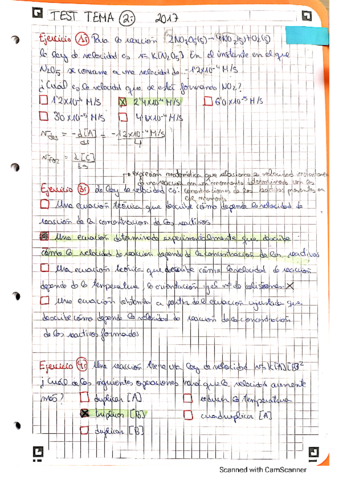 TEST TEMA 2: 2017
Ejercicio 1: Para la reacción 2N2O5(g) → 4NO2(g) + O2(g)
la ley de velocidad es v = K(N2O5). En el instante en el que
N2O5 se consume a una velocidad de -1'2x10⁻⁴ M/s
¿Cuál es la velocidad que se está formando NO2?
1'2x10⁻⁴ M/s 2'4x10⁻⁴ M/s 6'0x10⁻⁵ M/s
3'0x10⁻⁵ M/s 4'8x10⁻⁴ M/s
expresión matemática que relaciona la velocidad instantánea
de una reacción en un momento determinado con las
concentraciones de los
Ejercicio 3: La ley de velocidad es:
Una ecuación teórica que describe cómo depende la velocidad de
reacción de la concentración de los reactivos
Una ecuación determinada experimentalmente que describe
cómo la velocidad de reacción depende de la concentración de los reactivos
Una ecuación teórica que describe cómo la velocidad de reacción
depende de la temperatura, la orientación y el nº de colisiones X
Una ecuación obtenida a partir de la ecuación ajustada que
describe cómo depende la velocidad de reacción de la concentración
de los reactivos formados
Ejercicio 4: Una reacción tiene una ley de velocidad v = K[A][B]²
¿Cuál de las siguientes operaciones hará que la velocidad aumente
más? duplicar [A] reducir la temperatura
triplicar [B] cuadruplicar [A]
duplicar [B]
Scanned with CamScanner